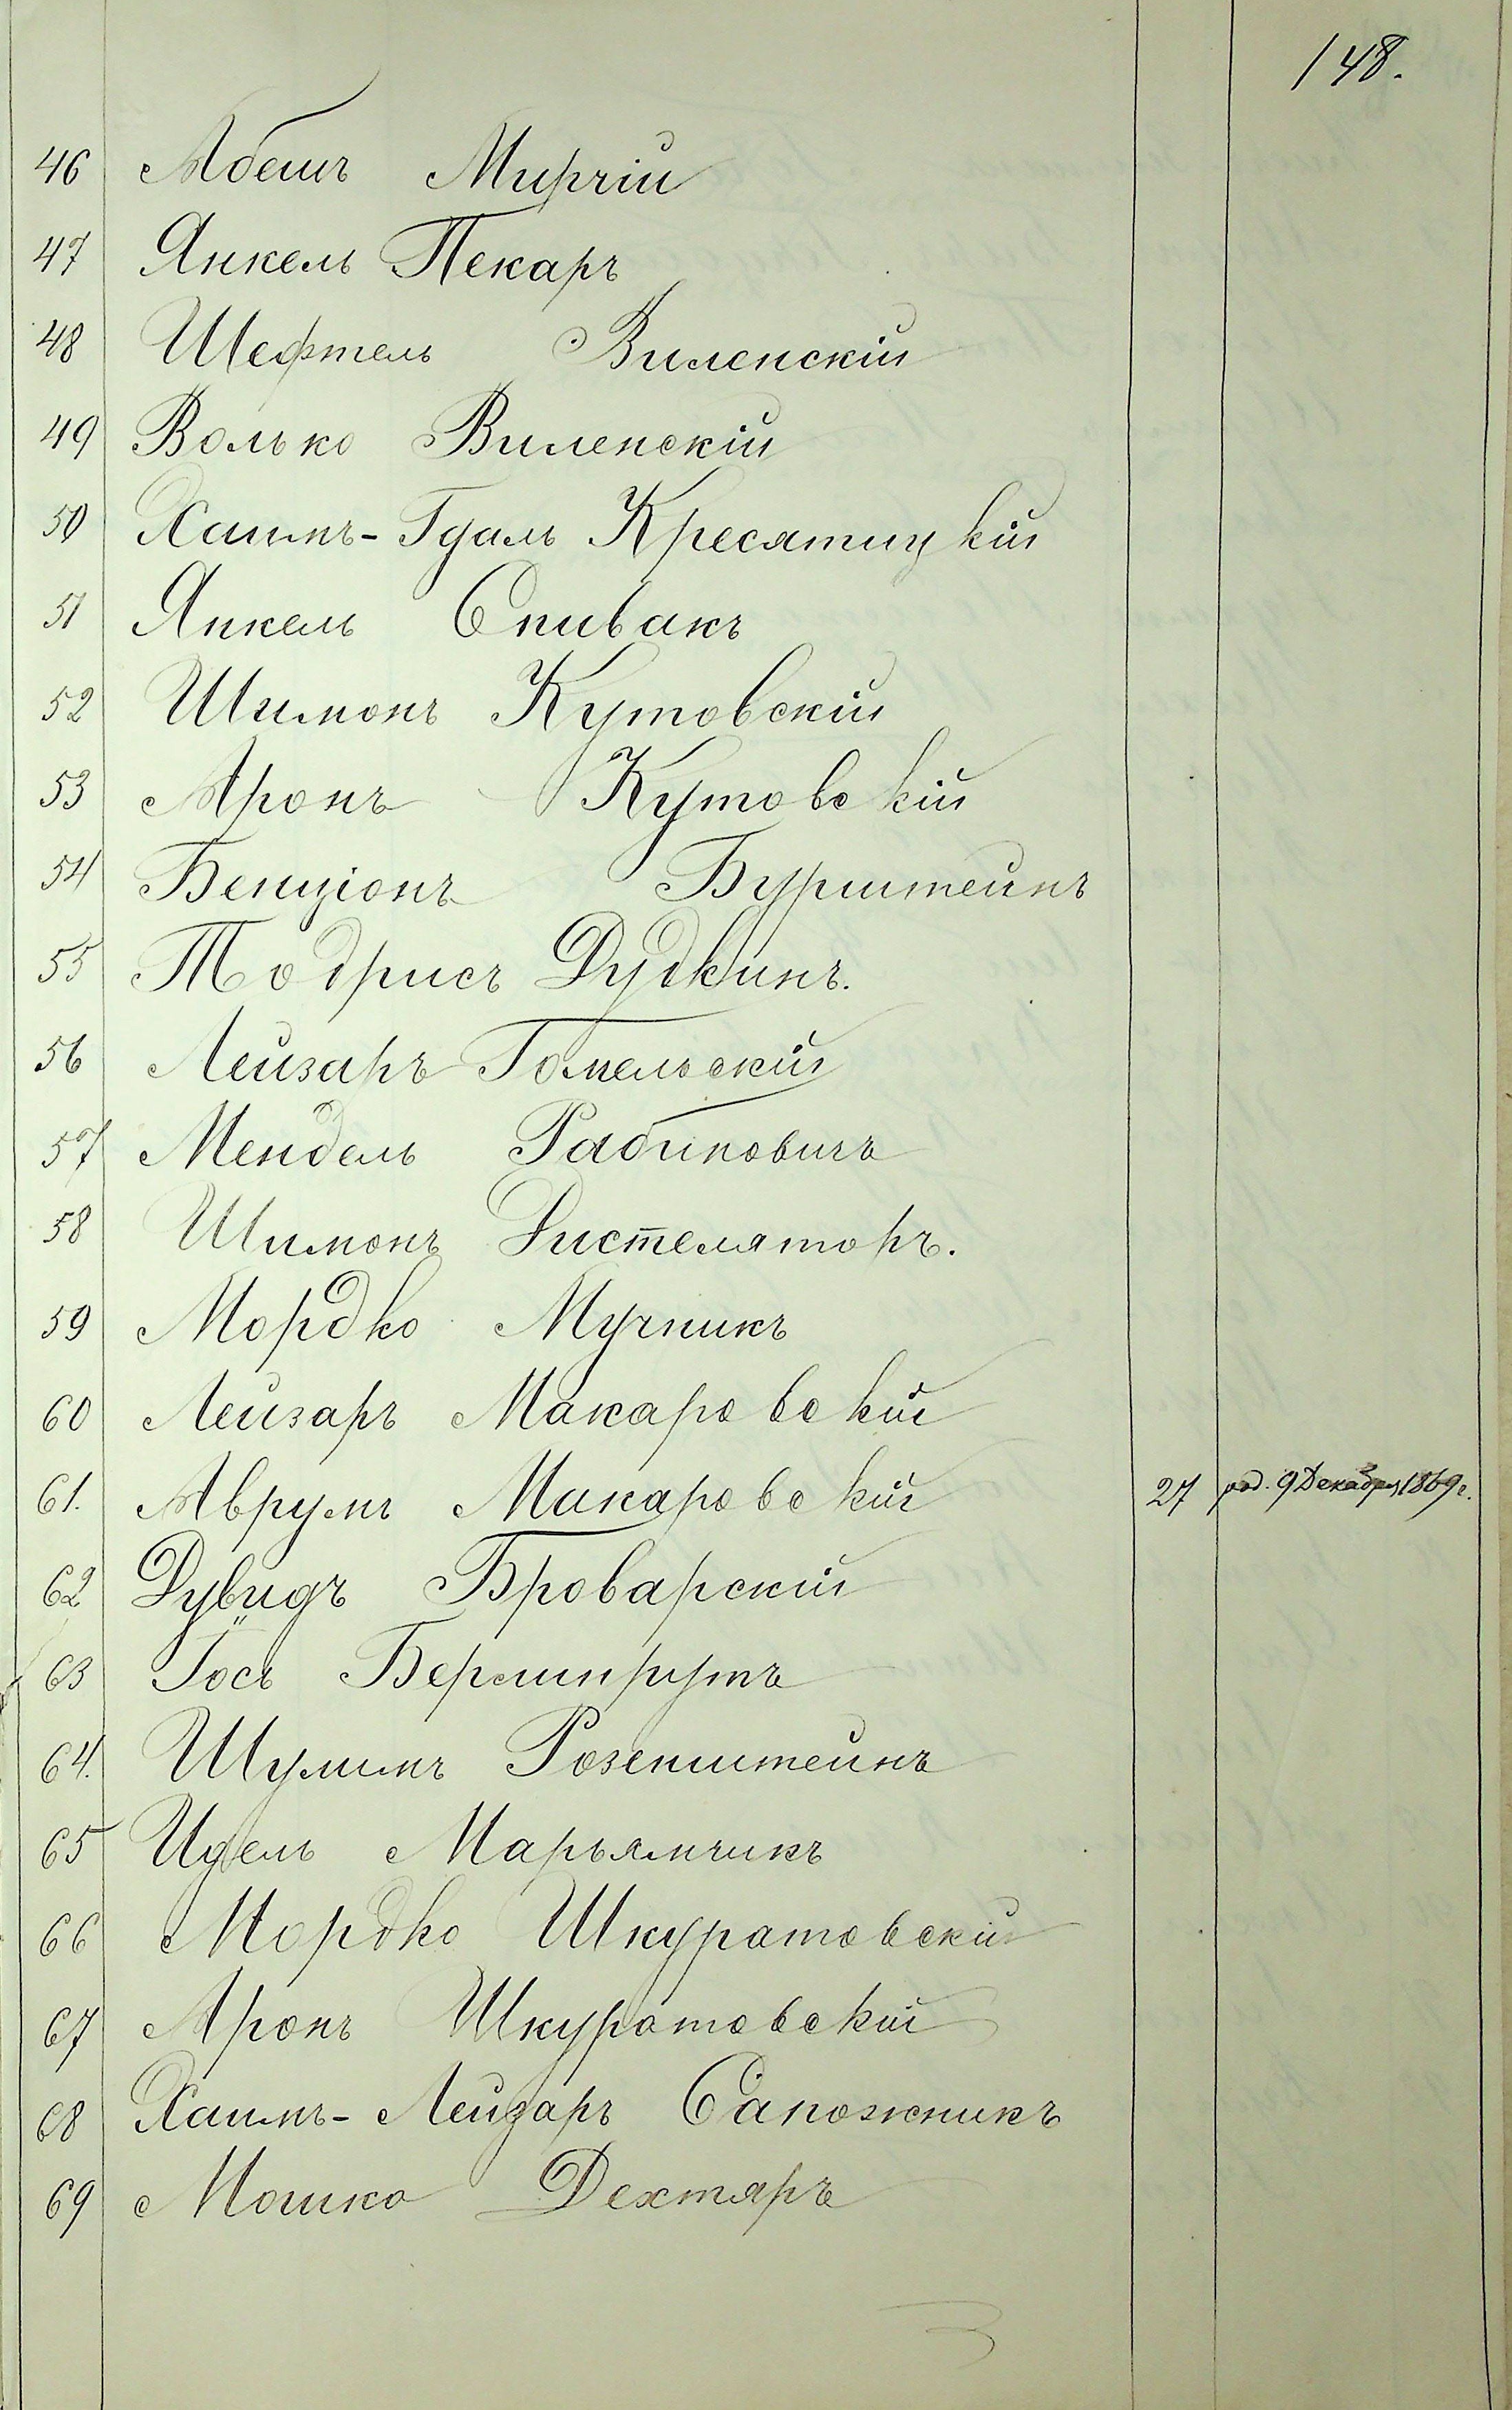 148.
46 Абешъ Мирчій
47 Янкель Пекаръ
48 Шефтель Виленскій
49 Волько Виленскій
50 Хаимъ-Гдаль Кресятицкій
51 Янкель Спивакъ
52 Шимонъ Кутовскій
53 Аронъ Кутовскій
54 Бенціонъ Бурштейнъ
55 Тодрисъ Дудкинъ.
56 Лейзаръ Гомельскій
57 Мендель Рабиновичъ
58 Шимонъ Дистеляторъ.
59 Мордко Мучникъ
60 Лейзаръ Макаровскій
61. Аврумъ Макаровскій 27 род. 9 Декабря 1869 г.
62 Дувидъ Броварскій
63 Іось Берлинрутъ
64. Шулимъ Розенштейнъ
65 Идель Марьямчикъ
66 Мордко Шкуратовскій
67 Аронъ Шкуратовскій
68 Хаимъ-Лейзаръ Сапожникъ
69 Мошко Дехтяръ